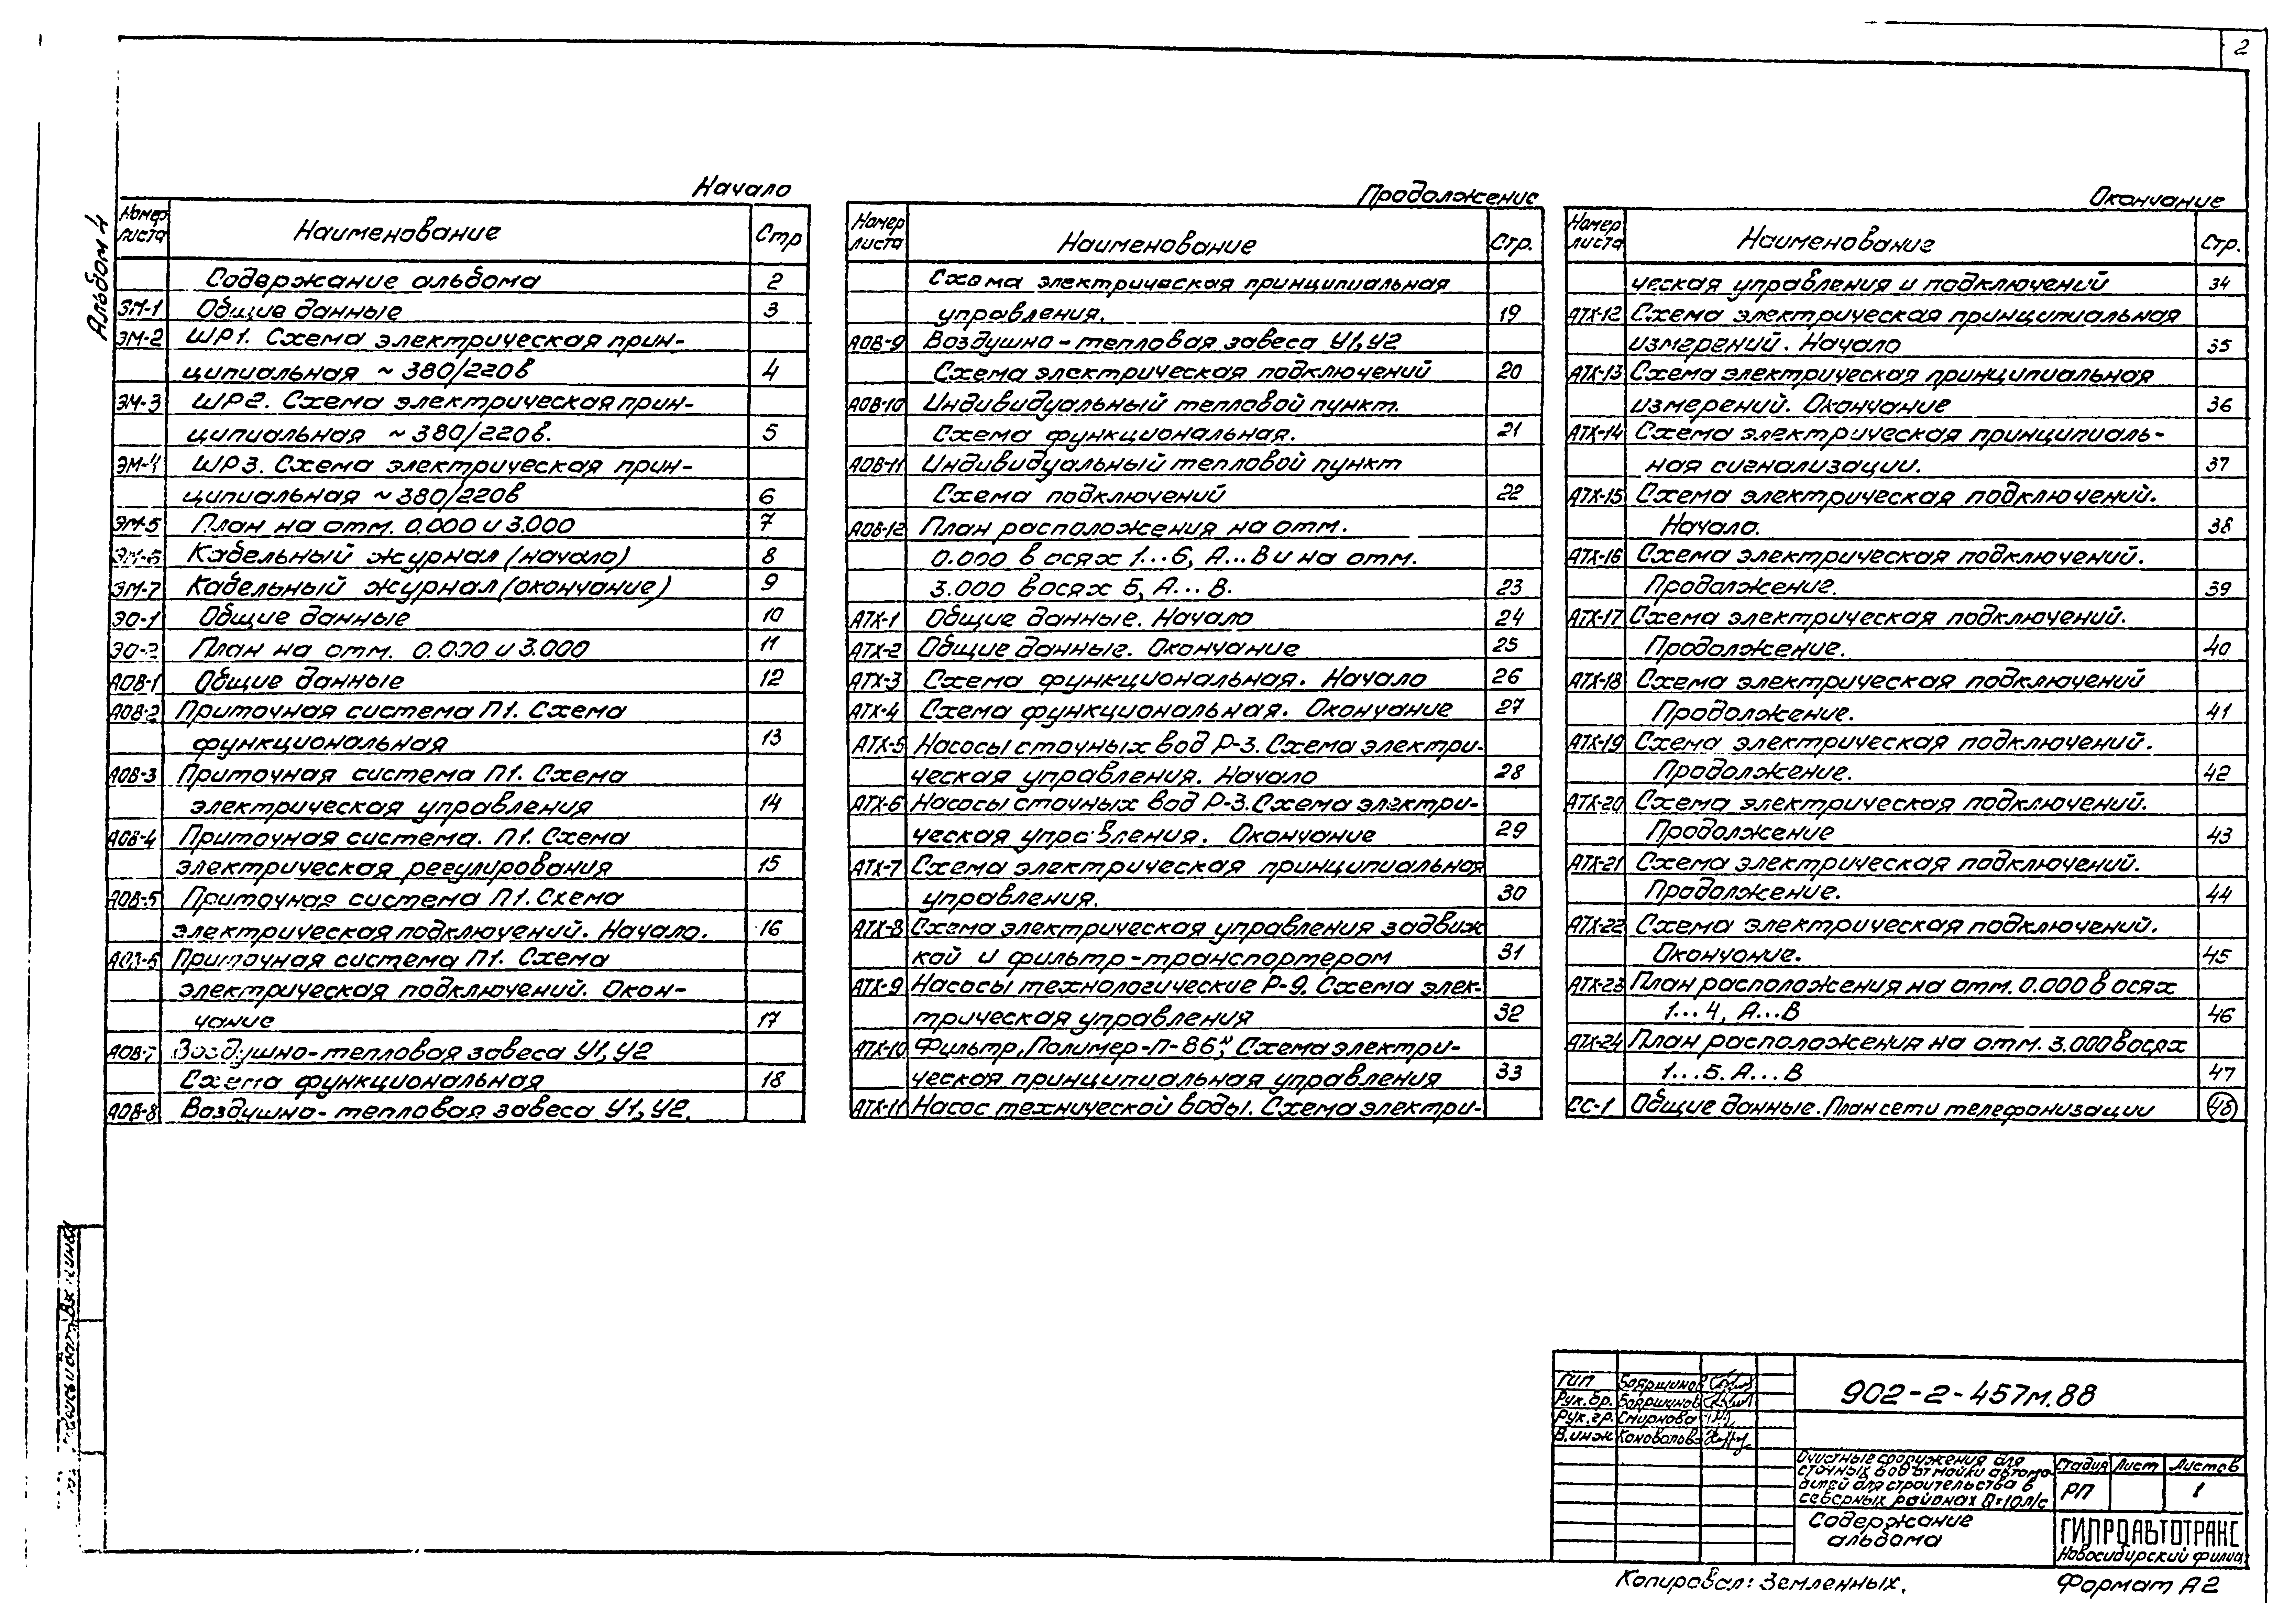 2
Альбом 4
Начало
Номер листа Наименование Стр
Содержание альбома 2
ЭМ-1 Общие данные 3
ЭМ-2 ШР1. Схема электрическая прин-
ципиальная ~ 380/220в 4
ЭМ-3 ШР2. Схема электрическая прин-
ципиальная ~ 380/220в. 5
ЭМ-4 ШР3. Схема электрическая прин-
ципиальная ~ 380/220в 6
ЭМ-5 План на отм. 0.000 и 3.000 7
ЭМ-6 Кабельный журнал (начало) 8
ЭМ-7 Кабельный журнал (окончание) 9
ЭО-1 Общие данные 10
ЭО-2 План на отм. 0.000 и 3.000 11
АОВ-1 Общие данные 12
АОВ-2 Приточная система П1. Схема
функциональная 13
АОВ-3 Приточная система П1. Схема
электрическая управления 14
АОВ-4 Приточная система. П1. Схема
электрическая регулирования 15
АОВ-5 Приточная система П1. Схема
электрическая подключений. Начало. 16
АОВ-6 Приточная система П1. Схема
электрическая подключений. Окон-
чание 17
АОВ-7 Воздушно-тепловая завеса У1, У2
Схема функциональная 18
АОВ-8 Воздушно-тепловая завеса У1, У2.
Продолжение
Номер листа Наименование Стр.
Схема электрическая принципиальная
управления. 19
АОВ-9 Воздушно-тепловая завеса У1, У2
Схема электрическая подключений 20
АОВ-10 Индивидуальный тепловой пункт.
Схема функциональная. 21
АОВ-11 Индивидуальный тепловой пункт
Схема подключений 22
АОВ-12 План расположения на отм.
0.000 в осях 1...6, А...В и на отм.
3.000 в осях 5, А...В. 23
АТХ-1 Общие данные. Начало 24
АТХ-2 Общие данные. Окончание 25
АТХ-3 Схема функциональная. Начало 26
АТХ-4 Схема функциональная. Окончание 27
АТХ-5 Насосы сточных вод Р-3. Схема электри-
ческая управления. Начало 28
АТХ-6 Насосы сточных вод Р-3. Схема электри-
ческая управления. Окончание 29
АТХ-7 Схема электрическая принципиальная
управления. 30
АТХ-8 Схема электрическая управления задвиж
кой и фильтр-транспортером 31
АТХ-9 Насосы технологические Р-9. Схема элек-
трическая управления 32
АТХ-10 Фильтр „Полимер-П-86". Схема электри-
ческая принципиальная управления 33
АТХ-11 Насос технической воды. Схема электри-
Окончание
Номер листа Наименование Стр.
ческая управления и подключений 34
АТХ-12 Схема электрическая принципиальная
измерений. Начало 35
АТХ-13 Схема электрическая принципиальная
измерений. Окончание 36
АТХ-14 Схема электрическая принципиаль-
ная сигнализации. 37
АТХ-15 Схема электрическая подключений.
Начало. 38
АТХ-16 Схема электрическая подключений.
Продолжение. 39
АТХ-17 Схема электрическая подключений.
Продолжение. 40
АТХ-18 Схема электрическая подключений
Продолжение. 41
АТХ-19 Схема электрическая подключений.
Продолжение. 42
АТХ-20 Схема электрическая подключений.
Продолжение 43
АТХ-21 Схема электрическая подключений.
Продолжение. 44
АТХ-22 Схема электрическая подключений.
Окончание. 45
АТХ-23 План расположения на отм. 0.000 в осях
1...4, А...В 46
АТХ-24 План расположения на отм. 3.000 в осях
1...5. А...В 47
СС-1 Общие данные. План сети телефонизации 48
ГИП Бояршинов
Рук. бр. Бояршинов
Рук. гр. Смирнова
В. инж Коновалов
902-2-457м.88
Очистные сооружения для
сточных вод от мойки автомо-
билей для строительства в
северных районах Q=10л/с
Стадия Лист Листов
РП 1
Содержание
альбома
ГИПРОАВТОТРАНС
Новосибирский филиал
Копировал: Земленных.
Формат А2